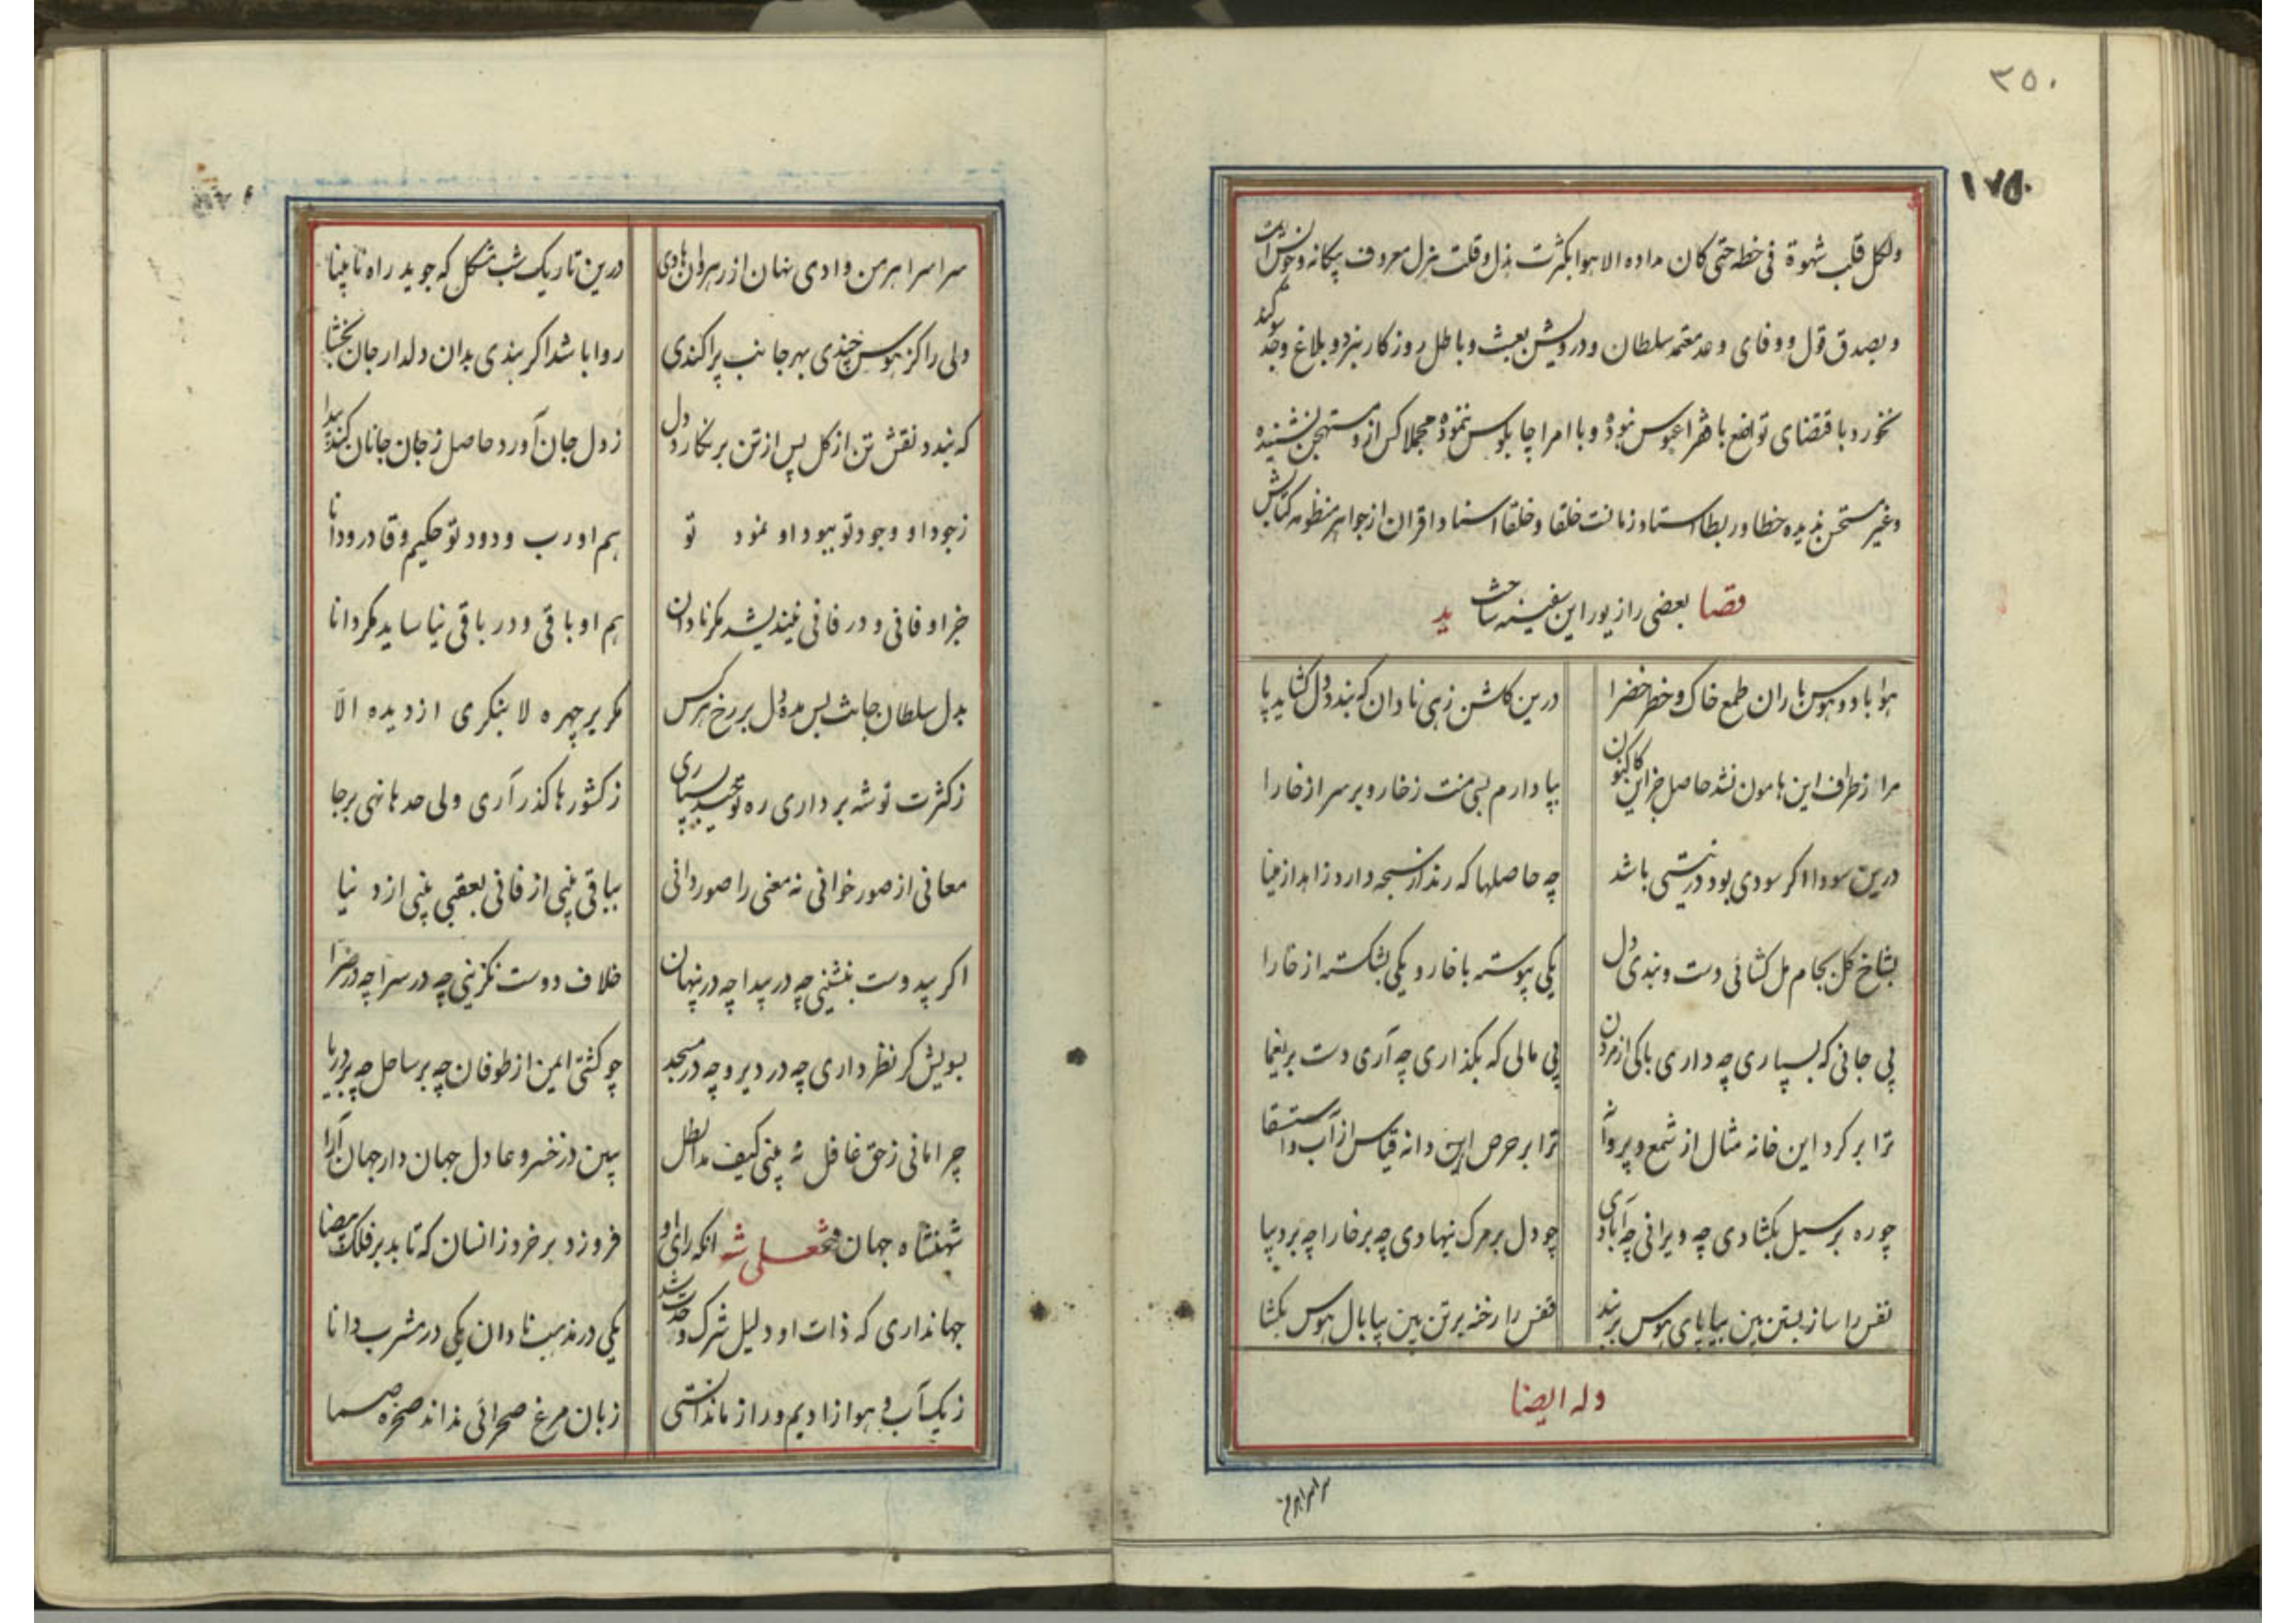 ٣٥٠
١٧٥
ولکل قلب شهوة فی خطه حتی کان مداده الاهوا بکثرت بذل و قلت هزل معروف بیکانه و خویش است
و بصدق قول و وفای وعد معتمد سلطان و درویش بعبث و باطل روزکار نبرد و بلاغ وجد سوکند
نخورد باقتضای تواضع با فقرا عبوس نبوده و با امرا چاپلوس ننموده مجملا کس ازو مستهجن نشنیده
وغیر مستحسن ندیده خطا و ربطا استاد زمانست خلقا و خلقا استاد اقران از جواهر منظومه کتابش
بعضی را زیور این سفینه ساخت
قصاید
هوا باد و هوس باران طمع خاک و خطر خضرا
درین کلشن زهی نادان که بندد دل کشاید پا
مرا از طرف این هامون نشد حاصل جز این کاکنون
بپا دارم بسی منت ز خار و بر سر از خارا
درین سودا اکر سودی بود در نیستی باشد
چه حاصلها که رند از سبحه دارد زاهد از مینا
بشاخ کل بجام مل کشائی دست و بندی دل
یکی پیوسته با خار و یکی بشکسته از خارا
پی جانی که بسپاری چه داری باکی از مردن
پی مالی که بکذاری چه آری دست بر یغما
ترا بر کرد این خانه مثال از شمع و پروانه
ترا بر حرص این دانه قیاس از آب و استسقا
چو ره بر سیل بکشادی چه ویرانی چه آبادی
چو دل بر مرک بنهادی چه بر خارا چه بر دیبا
نفس را ساز بستن بین بیا پای هوس بربند
قفس را رخنه بر تن بین بیا بال هوس بکشا
وله ایضا
سراسر اهرمن
سراسر اهرمن وادی نهان از رهروان هادی
درین تاریک شب مشکل که جوید راه نابینا
دلی را کز هوس چندی بهر جانب پراکندی
روا باشد اکر بندی بدان دلدار جان بخشا
که بندد نقش تن از کل پس از تن برنکارد دل
ز دل جان آورد حاصل ز جان جانان کند پیدا
ز جود او وجود تو ببود او نمود تو
هم او رب ودود تو حکیم و قادر و دانا
جز او فانی و در فانی نیندیشد مکر نادان
هم او باقی و در باقی نیاساید مکر دانا
بدل سلطان جانت بس مده دل بر رخ هر کس
مکر بر چهره لا بنکری از دیده الا
ز کثرت توشه برداری ره توحید بسپاری
ز کشورها کذر آری ولی حدها نهی برجا
معانی از صور خوانی نه معنی را صور دانی
بباقی بینی از فانی بعقبی بینی از دنیا
اکر بیدوست بنشینی چه در پیدا چه در پنهان
خلاف دوست نکزینی چه در سرا چه در ضرا
بسویش کر نظر داری چه در دیر و چه در مسجد
چو کشتی ایمن از طوفان چه بر ساحل چه بر دریا
چرا مانی ز حق غافل نه بینی کیف مد الظل
ببین در خسرو عادل جهاندار جهان آرا
شهنشاه جهان فتحعلی شه انکه رای او
فروزد بر خرد ز انسان که تابد بر فلک بیضا
جهانداری که ذات او دلیل شرک و وحدت شد
یکی در مذهب نادان یکی در مشرب دانا
ز یک آب و هوا زادیم و راز ما ندانستی
زبان مرغ صحرائی نداند صخره صما